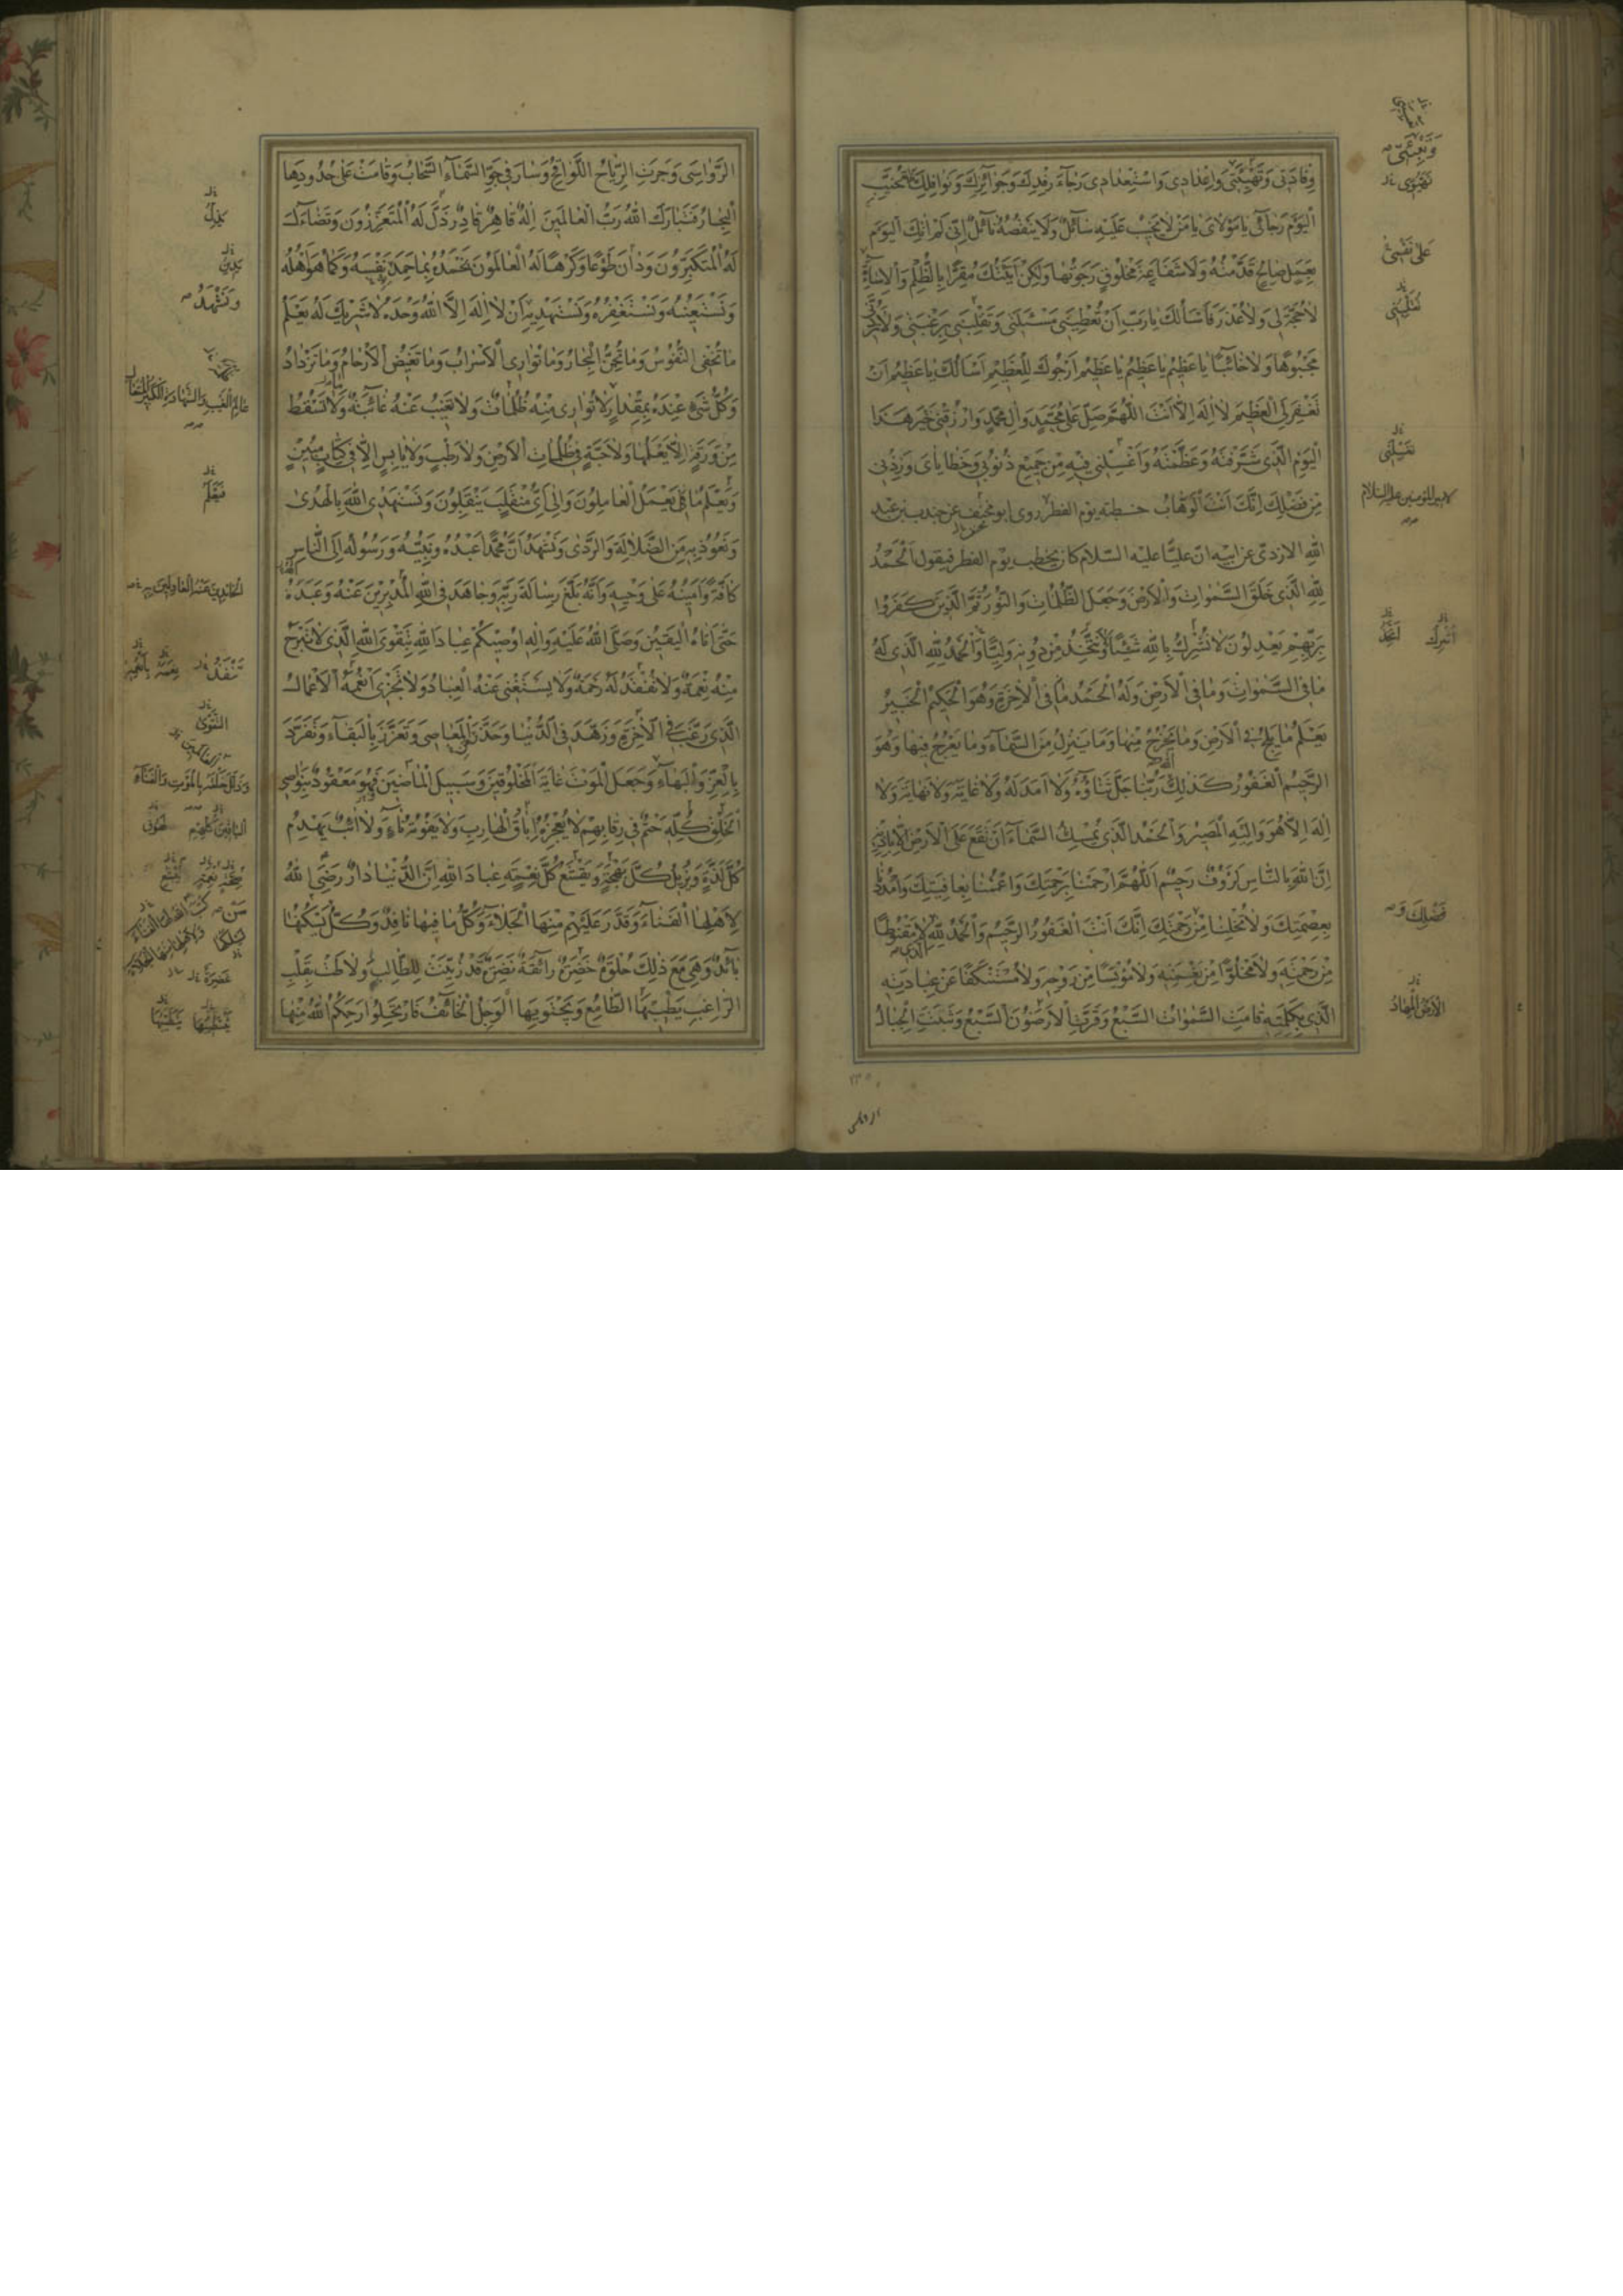 وِفادَتى وَتَهْيِئَتى وَاِعْدادى وَاسْتِعْدادى رَجآءَ رِفْدِكَ وَجَوآئِزِكَ وَنَوافِلِكَ فَلا تُخَيِّبِ
الْيَوْمَ رَجآئى يا مَوْلاىَ يا مَنْ لا يَخيبُ عَلَيْهِ سآئِلٌ وَلا يَنْقُصُهُ نآئِلٌ اِنّى لَمْ اٰتِكَ الْيَوْمَ
بِعَمَلٍ صالِحٍ قَدَّمْتُهُ وَلا شَفاعَةِ مَخْلُوقٍ رَجَوْتُها وَلكِنْ اَتَيْتُكَ مُقِرًّا بِالظُّلْمِ وَالْاِسآءَةِ
لا حُجَّةَ لى وَلا عُذْرَ فَاَسْأَلُكَ يا رَبِّ اَنْ تُعْطِيَنى مَسْئَلَتى وَتَقْلِبَنى بِرَغْبَتى وَلا تَرُدَّنى
مَجْبُوهًا وَلا خآئِبًا يا عَظيمُ يا عَظيمُ يا عَظيمُ اَرْجُوكَ لِلْعَظيمِ اَسْأَلُكَ يا عَظيمُ اَنْ
تَغْفِرَ لِىَ الْعَظيمَ لا اِلهَ اِلّا اَنْتَ اَللّهُمَّ صَلِّ عَلى مُحَمَّدٍ وَالِ مُحَمَّدٍ وَارْزُقْنى خَيْرَ هذَا
الْيَوْمِ الَّذى شَرَّفْتَهُ وَعَظَّمْتَهُ وَاغْسِلْنى فيهِ مِنْ جَميعِ ذُنُوبى وَخَطاياىَ وَزِدْنى
مِنْ فَضْلِكَ اِنَّكَ اَنْتَ الْوَهّابُ خطبته يوم الفطر روى ابو مخنف عن جندب بن عبد
اللّه الازدى عن ابيه انّ عليّا عليه السّلام كان يخطب يوم الفطر فيقول اَلْحَمْدُ
لِلّهِ الَّذى خَلَقَ السَّمواتِ وَالْاَرْضَ وَجَعَلَ الظُّلُماتِ وَالنُّورَ ثُمَّ الَّذينَ كَفَرُوا
بِرَبِّهِمْ يَعْدِلُونَ لا نُشْرِكُ بِاللّهِ شَيْئًا وَلا نَتَّخِذُ مِنْ دُونِه وَلِيًّا وَالْحَمْدُ لِلّهِ الَّذى لَهُ
ما فِى السَّمواتِ وَما فِى الْاَرْضِ وَلَهُ الْحَمْدُ فِى الْاٰخِرَةِ وَهُوَ الْحَكيمُ الْخَبيرُ
يَعْلَمُ ما يَلِجُ فِى الْاَرْضِ وَما يَخْرُجُ مِنْها وَما يَنْزِلُ مِنَ السَّمآءِ وَما يَعْرُجُ فيها وَهُوَ
الرَّحيمُ الْغَفُورُ كَذلِكَ رَبُّنا جَلَّ ثَنآؤُهُ وَلا اَمَدَ لَهُ وَلا غايَةَ وَلا نِهايَةَ وَلا
اِلهَ اِلّا هُوَ وَاِلَيْهِ الْمَصيرُ وَالْحَمْدُ لِلّهِ الَّذى يُمْسِكُ السَّمآءَ اَنْ تَقَعَ عَلَى الْاَرْضِ اِلّا بِاِذْنِه
اِنَّ اللّهَ بِالنّاسِ لَرَؤُفٌ رَحيمٌ اَللّهُمَّ ارْحَمْنا بِرَحْمَتِكَ وَاعْمُمْنا بِعافِيَتِكَ وَاَمْدِدْنا
بِعِصْمَتِكَ وَلا تُخْلِنا مِنْ رَحْمَتِكَ اِنَّكَ اَنْتَ الْغَفُورُ الرَّحيمُ وَالْحَمْدُ لِلّهِ لا مَقْنُوطًا
مِنْ رَحْمَتِه وَلا مَخْلُوًّا مِنْ نِعْمَتِه وَلا مُؤْيَسًا مِنْ رَوْحِه وَلا مُسْتَنْكَفًا عَنْ عِبادَتِه
الَّذى بِكَلِمَتِه قامَتِ السَّمواتُ السَّبْعُ وَقَرَّتِ الْاَرَضُونَ السَّبْعُ وَثَبَتَتِ الْجِبالُ
عَلى نَفْسى
لامير المؤمنين عليه السلام
فَضْلِكَ وَ
الْاَرْضُ الْمِهادُ
الرَّواسى وَجَرَتِ الرِّياحُ اللَّواقِحُ وَسارَ فى جَوِّ السَّمآءِ السَّحابُ وَقامَتْ عَلى حُدُودِهَا
الْبِحارُ فَتَبارَكَ اللّهُ رَبُّ الْعالَمينَ اِلهٌ قاهِرٌ قادِرٌ ذَلَّ لَهُ الْمُتَعَزِّزُونَ وَتَضآءَلَ
لَهُ الْمُتَكَبِّرُونَ وَدانَ طَوْعًا وَكَرْهًا لَهُ الْعالَمُونَ نَحْمَدُهُ بِما حَمِدَ نَفْسَهُ وَكَما هُوَ اَهْلُهُ
وَنَسْتَعينُهُ وَنَسْتَغْفِرُهُ وَنَسْتَهْديهِ اَنْ لا اِلهَ اِلَّا اللّهُ وَحْدَهُ لا شَريكَ لَهُ يَعْلَمُ
ما تُخْفِى النُّفُوسُ وَما تُجِنُّ الْبِحارُ وَما تُوارِى الْاَسْرابُ وَما تَغيضُ الْاَرْحامُ وَما تَزْدادُ
وَكُلُّ شَىْءٍ عِنْدَهُ بِمِقْدارٍ لا تُوارى مِنْهُ ظُلُماتٌ وَلا تَغيبُ عَنْهُ غآئِبَةٌ وَلا تَسْقُطُ
مِنْ وَرَقَةٍ اِلّا يَعْلَمُها وَلا حَبَّةٍ فى ظُلُماتِ الْاَرْضِ وَلا رَطْبٍ وَلا يابِسٍ اِلّا فى كِتابٍ مُبينٍ
وَيَعْلَمُ ما يَعْمَلُ الْعامِلُونَ وَاِلى اَىِّ مُنْقَلَبٍ يَنْقَلِبُونَ وَنَسْتَهْدِى اللّهَ بِالْهُدى
وَنَعُوذُ بِه مِنَ الضَّلالَةِ وَالرَّدى وَنَشْهَدُ اَنَّ مُحَمَّدًا عَبْدُهُ وَنَبِيُّهُ وَرَسُولُهُ اِلَى النّاسِ
كآفَّةً وَاَمينُهُ عَلى وَحْيِه وَاَنَّهُ بَلَّغَ رِسالَةَ رَبِّه وَجاهَدَ فِى اللّهِ الْمُدْبِرينَ عَنْهُ وَعَبَدَهُ
حَتّى اَتاهُ الْيَقينُ وَصَلَّى اللّهُ عَلَيْهِ وَالِه اُوصيكُمْ عِبادَ اللّهِ بِتَقْوَى اللّهِ الَّذى لا تَبْرَحُ
مِنْهُ نِعْمَةٌ وَلا تُفْقَدُ لَهُ رَحْمَةٌ وَلا يَسْتَغْنى عَنْهُ الْعِبادُ وَلا تَجْزى اَنْعُمَهُ الْاَعْمالُ
الَّذى رَغَّبَ فِى الْاٰخِرَةِ وَزَهَّدَ فِى الدُّنْيا وَحَذَّرَ الْمَعاصِىَ وَتَعَزَّزَ بِالْبَقآءِ وَتَفَرَّدَ
بِالْعِزِّ وَالْبَهآءِ وَجَعَلَ الْمَوْتَ غايَةَ الْمَخْلُوقينَ وَسَبيلَ الْماضينَ فَهُوَ مَعْقُودٌ بِنَواصِى
الْخَلْقِ كُلِّهِ حَتْمٌ فى رِقابِهِمْ لا يُعْجِزُهُ اِباقُ الْهارِبِ وَلا يَفُوتُهُ نآءٍ وَلا آئِبٌ يَهْدِمُ
كُلَّ لَذَّةٍ وَيُزيلُ كُلَّ بَهْجَةٍ وَيَقْشَعُ كُلَّ نِعْمَةٍ عِبادَ اللّهِ اِنَّ الدُّنْيا دارٌ رَضِىَ اللّهُ
لِاَهْلِهَا الْفَنآءَ وَقَدَّرَ عَلَيْهِمْ مِنْهَا الْجَلآءَ وَكُلُّ ما فيها نافِدٌ وَكُلُّ مَنْ يَسْكُنُها
بآئِدٌ وَهِىَ مَعَ ذلِكَ حُلْوَةٌ خَضِرَةٌ رآئِقَةٌ نَضِرَةٌ قَدْ زُيِّنَتْ لِلطّالِبِ وَلاطَتْ بِقَلْبِ
الرّاغِبِ يُطَيِّبُهَا الطّامِعُ وَيَجْتَويهَا الْوَجِلُ الْخآئِفُ فَارْتَحِلُوا رَحِمَكُمُ اللّهُ مِنْها
وَنَشْهَدُ
عالِمُ الْغَيْبِ وَالشَّهادَةِ الْكَبيرُ الْمُتَعالِ
التَّقْوى
وَذَلَّلَ خَلْقَهُ بِالْمَوْتِ وَالْفَنآءِ